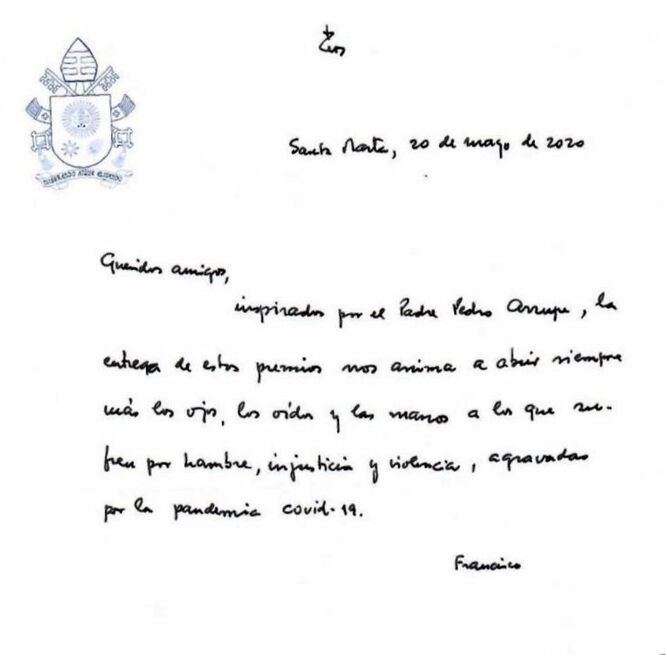 Santa Marta, 20 de mayo de 2020
MISERANDO ATQUE ELIGENDO
Queridos amigos,
inspirados por el Padre Pedro Arrupe, la
entrega de estos premios nos anima a abrir siempre
más los ojos, los oídos y las manos a los que su-
fren por hambre, injusticia y violencia, agravadas
por la pandemia covid-19.
Francisco